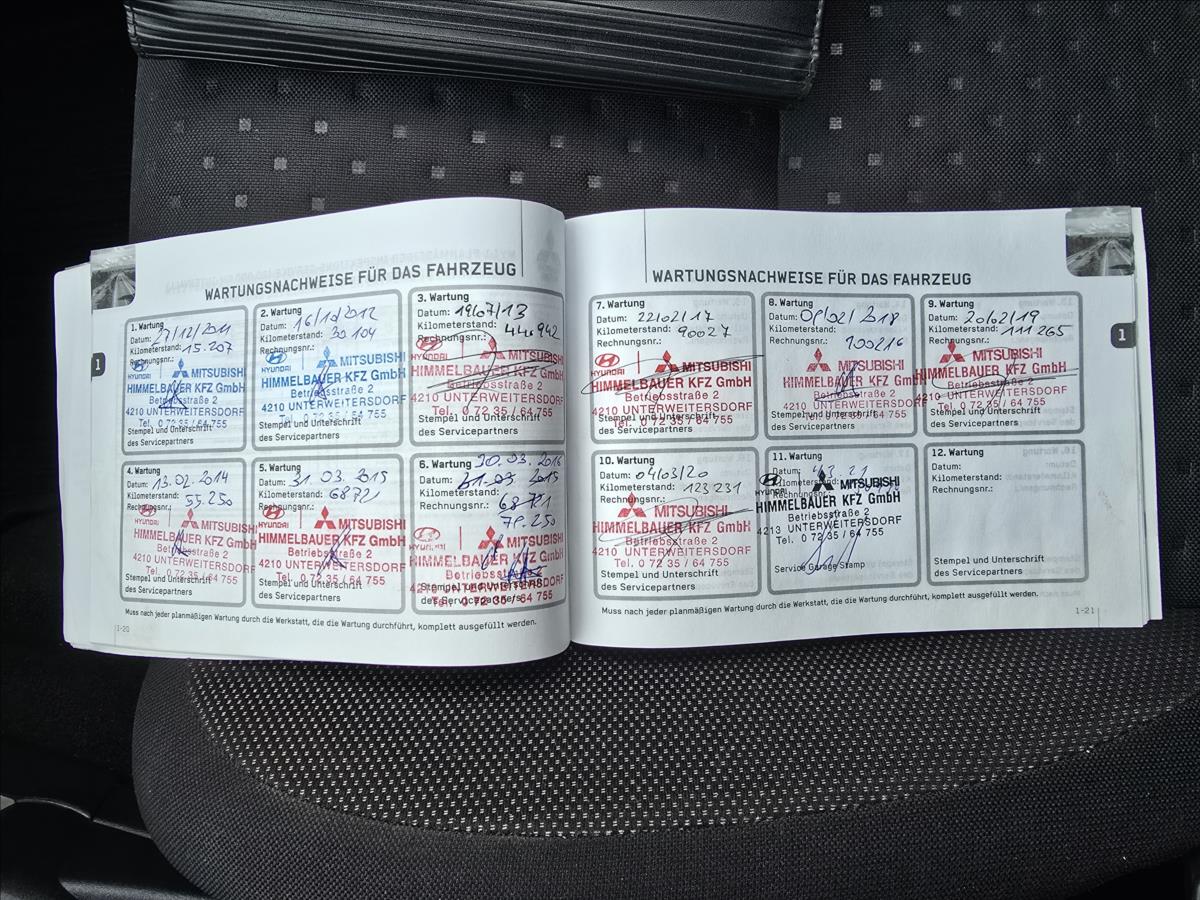 WARTUNGSNACHWEISE FÜR DAS FAHRZEUG
1. Wartung
Datum: /12/2011
Kilometerstand: 15.207
Rechnungsnr.:
HYUNDAI MITSUBISHI
HIMMELBAUER KFZ GmbH
Betriebsstraße 2
4210 UNTERWEITERSDORF
Tel. 0 72 35 / 64 755
Stempel und Unterschrift
des Servicepartners
2. Wartung
Datum: 16/10/2012
Kilometerstand: 30 104
Rechnungsnr.:
HYUNDAI MITSUBISHI
HIMMELBAUER KFZ GmbH
Betriebsstraße 2
4210 UNTERWEITERSDORF
Tel. 0 72 35 / 64 755
Stempel und Unterschrift
des Servicepartners
3. Wartung
Datum: 19/07/13
Kilometerstand: 44.942
Rechnungsnr.:
HYUNDAI MITSUBISHI
HIMMELBAUER KFZ GmbH
Betriebsstraße 2
4210 UNTERWEITERSDORF
Tel. 0 72 35 / 64 755
Stempel und Unterschrift
des Servicepartners
4. Wartung
Datum: 13.02.2014
Kilometerstand: 55.250
Rechnungsnr.:
HYUNDAI MITSUBISHI
HIMMELBAUER KFZ GmbH
Betriebsstraße 2
4210 UNTERWEITERSDORF
Tel. 0 72 35 / 64 755
Stempel und Unterschrift
des Servicepartners
5. Wartung
Datum: 31.03.2015
Kilometerstand: 68721
Rechnungsnr.:
HYUNDAI MITSUBISHI
HIMMELBAUER KFZ GmbH
Betriebsstraße 2
4210 UNTERWEITERSDORF
Tel. 0 72 35 / 64 755
Stempel und Unterschrift
des Servicepartners
6. Wartung 30.03.2016
Datum: 31.03.2015
Kilometerstand: 68721
Rechnungsnr.: 79.250
HYUNDAI MITSUBISHI
HIMMELBAUER KFZ GmbH
Betriebsstraße 2
4210 UNTERWEITERSDORF
Tel. 0 72 35 / 64 755
Stempel und Unterschrift
des Servicepartners
Muss nach jeder planmäßigen Wartung durch die Werkstatt, die die Wartung durchführt, komplett ausgefüllt werden.
1-20
1
WARTUNGSNACHWEISE FÜR DAS FAHRZEUG
7. Wartung
Datum: 22/02/17
Kilometerstand: 90027
Rechnungsnr.:
HYUNDAI MITSUBISHI
HIMMELBAUER KFZ GmbH
Betriebsstraße 2
4210 UNTERWEITERSDORF
Tel. 0 72 35 / 64 755
Stempel und Unterschrift
des Servicepartners
8. Wartung
Datum: /02/2018
Kilometerstand: 100216
Rechnungsnr.:
MITSUBISHI
HIMMELBAUER KFZ GmbH
Betriebsstraße 2
4210 UNTERWEITERSDORF
Tel. 0 72 35 / 64 755
Stempel und Unterschrift
des Servicepartners
9. Wartung
Datum: 20/02/19
Kilometerstand: 111 265
Rechnungsnr.:
MITSUBISHI
HIMMELBAUER KFZ GmbH
Betriebsstraße 2
4210 UNTERWEITERSDORF
Tel. 0 72 35 / 64 755
Stempel und Unterschrift
des Servicepartners
10. Wartung
Datum: 04/03/20
Kilometerstand: 123 231
Rechnungsnr.:
MITSUBISHI
HIMMELBAUER KFZ GmbH
Betriebsstraße 2
4210 UNTERWEITERSDORF
Tel. 0 72 35 / 64 755
Stempel und Unterschrift
des Servicepartners
11. Wartung
Datum:
Kilometerstand:
Rechnungsnr.:
HYUNDAI MITSUBISHI
HIMMELBAUER KFZ GmbH
Betriebsstraße 2
4213 UNTERWEITERSDORF
Tel. 0 72 35 / 64 755
Service Garage Stamp
12. Wartung
Datum:
Kilometerstand:
Rechnungsnr.:
Stempel und Unterschrift
des Servicepartners
Muss nach jeder planmäßigen Wartung durch die Werkstatt, die die Wartung durchführt, komplett ausgefüllt werden.
1-21
1